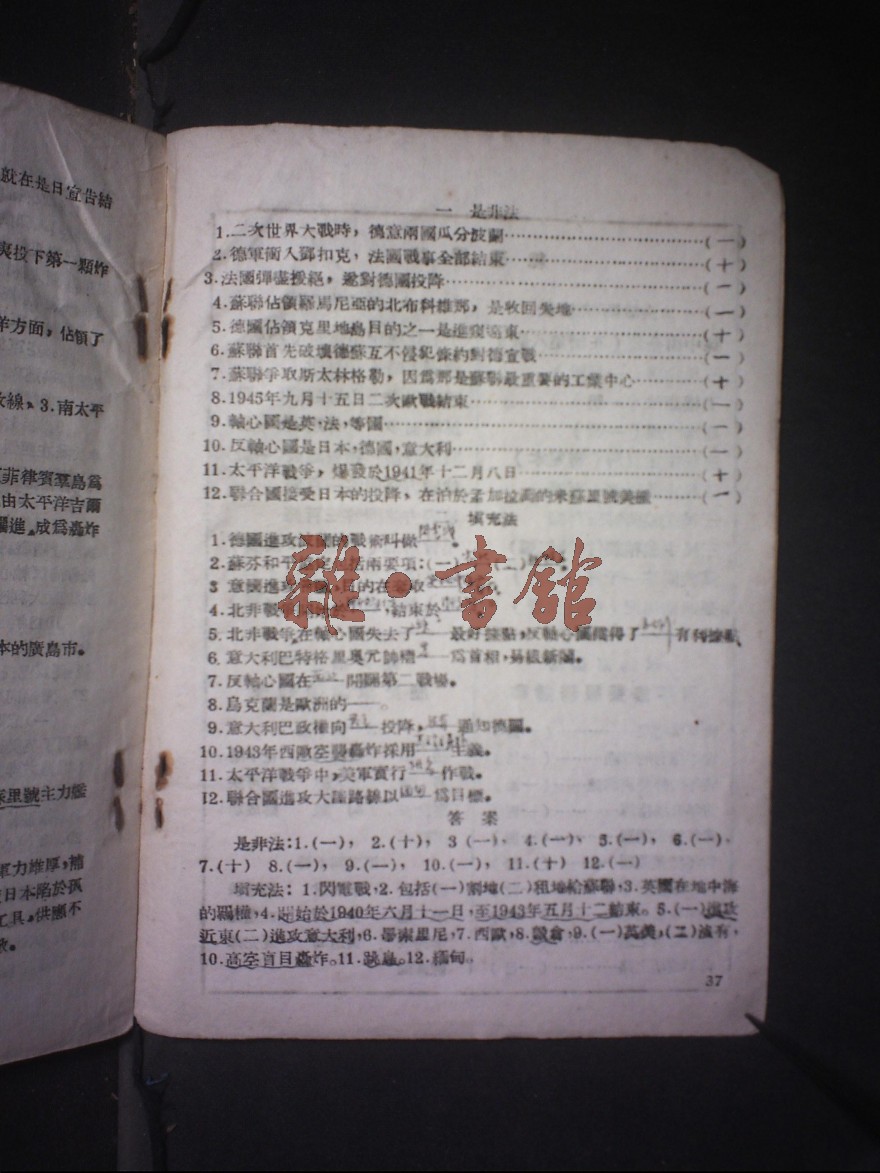 就在是日宣告結
投下第一顆炸
方面，佔領了
線、3.南太平
菲律賓羣島爲
由太平洋吉爾
進。成爲轟炸
本的廣島市。
里號主力艦
軍力雄厚，補
日本陷於孤
工具，供應不
一 是非法
1.二次世界大戰時，德意兩國瓜分波蘭……(一)
2.德軍衝入鄧扣克，法國戰事全部結束……(十)
3.法國彈盡援絕，遂對德國投降……(一)
4.蘇聯佔領羅馬尼亞的北布科維那，是收回失地……(一)
5.德國佔領克里地島目的之一是進窺近東……(十)
6.蘇聯首先破壞德蘇互不侵犯條約對德宣戰……(一)
7.蘇聯爭取斯太林格勒，因爲那是蘇聯最重要的工業中心……(十)
8.1945年九月十五日二次歐戰結束……(一)
9.軸心國是英，法，等國……(一)
10.反軸心國是日本，德國，意大利……(一)
11.太平洋戰爭，爆發於1941年十二月八日……(十)
12.聯合國接受日本的投降，在泊於孟加拉灣的米蘇里號美艦……(一)
二 填充法
1.德國進攻波蘭的戰術叫做——。
2.蘇芬和平 定 括兩要項：(一)
3 意國進攻 的在 取
4.北非戰爭 ，結束於
5.北非戰爭在軸心國失去了——最好據點，反軸心國獲得了——有利據點
6.意大利巴特格里奧元帥標——爲首相，另組新閣。
7.反軸心國在——開闢第二戰場。
8.烏克蘭是歐洲的——。
9.意大利巴政權向——投降，——通知德國。
10.1943年西歐空襲轟炸採用——主義。
11.太平洋戰爭中，美軍實行——作戰。
12.聯合國進攻大陸路線以——爲目標。
答 案
是非法：1.(一)， 2.(十)， 3 (一)， 4.(一)、 5.(一)， 6.(一)、
7.(十) 8.(一)， 9.(一)， 10.(一)， 11.(十) 12.(一)
填充法： 1.閃電戰，2.包括(一)割地(二)租地給蘇聯，3.英國在地中海
的覇權，4.開始於1940年六月十一日，至1943年五月十二結束。5.(一)進攻
近東(二)進攻意大利，6.墨索里尼，7.西歐，8.穀倉，9.(一)英美，(二)沒有，
10.高空盲目轟炸。11.跳島。12.緬甸。
37
雜·書館